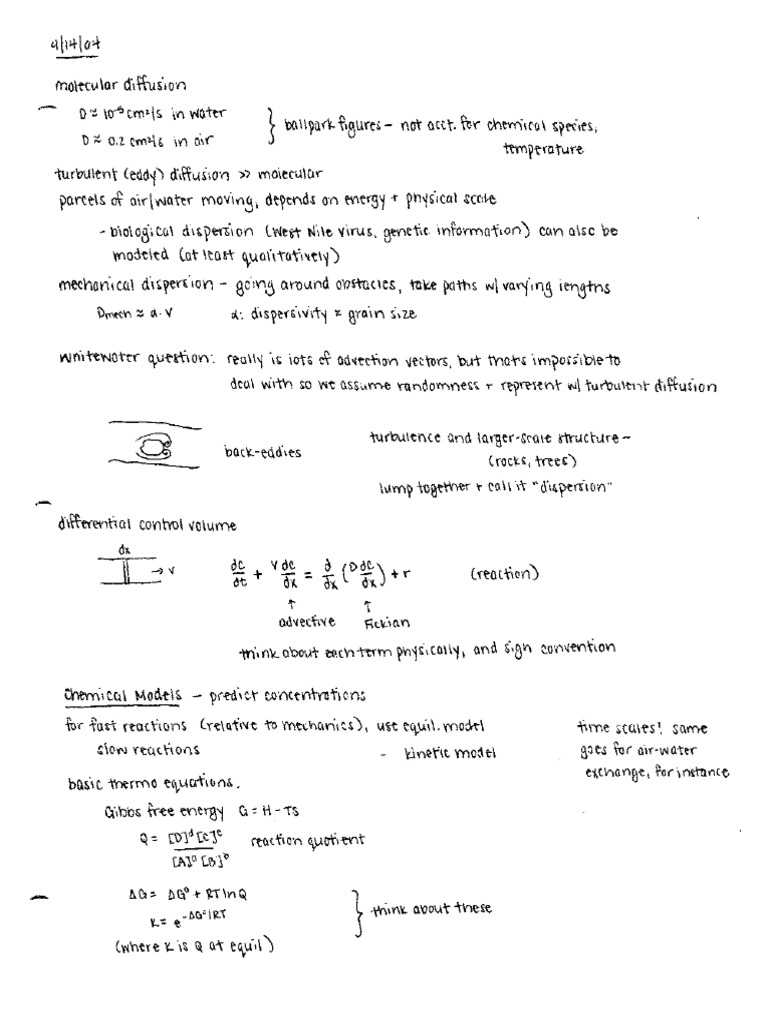 9/14/04
molecular diffusion
D ≈ 10⁻⁵ cm²/s in water
D ≈ 0.2 cm²/s in air
} ballpark figures - not acct. for chemical species, temperature
turbulent (eddy) diffusion >> molecular
parcels of air/water moving, depends on energy + physical scale
- biological dispersion (West Nile Virus, genetic information) can also be
modeled (at least qualitatively)
mechanical dispersion - going around obstacles, take paths w/ varying lengths
Dmech ≈ α·V    α: dispersivity ≈ grain size
whitewater question: really is lots of advection vectors, but that's impossible to
deal with so we assume randomness + represent w/ turbulent diffusion
back-eddies
turbulence and larger-scale structure -
(rocks, trees)
lump together + call it "dispersion"
differential control volume
dx
→ V
dC/dt + V dC/dx = d/dx (D dC/dx) + r    (reaction)
↑ advective    ↑ Fickian
think about each term physically, and sign convention
Chemical Models - predict concentrations
for fast reactions (relative to mechanics), use equil. model
slow reactions - kinetic model
time scales! same
goes for air-water
exchange, for instance
basic thermo equations.
Gibbs free energy G = H - TS
Q = [D]ᵈ[C]ᶜ / [A]ᵃ[B]ᵇ    reaction quotient
ΔG = ΔG° + RT ln Q
K = e^-ΔG°/RT
} think about these
(where K is Q at equil)